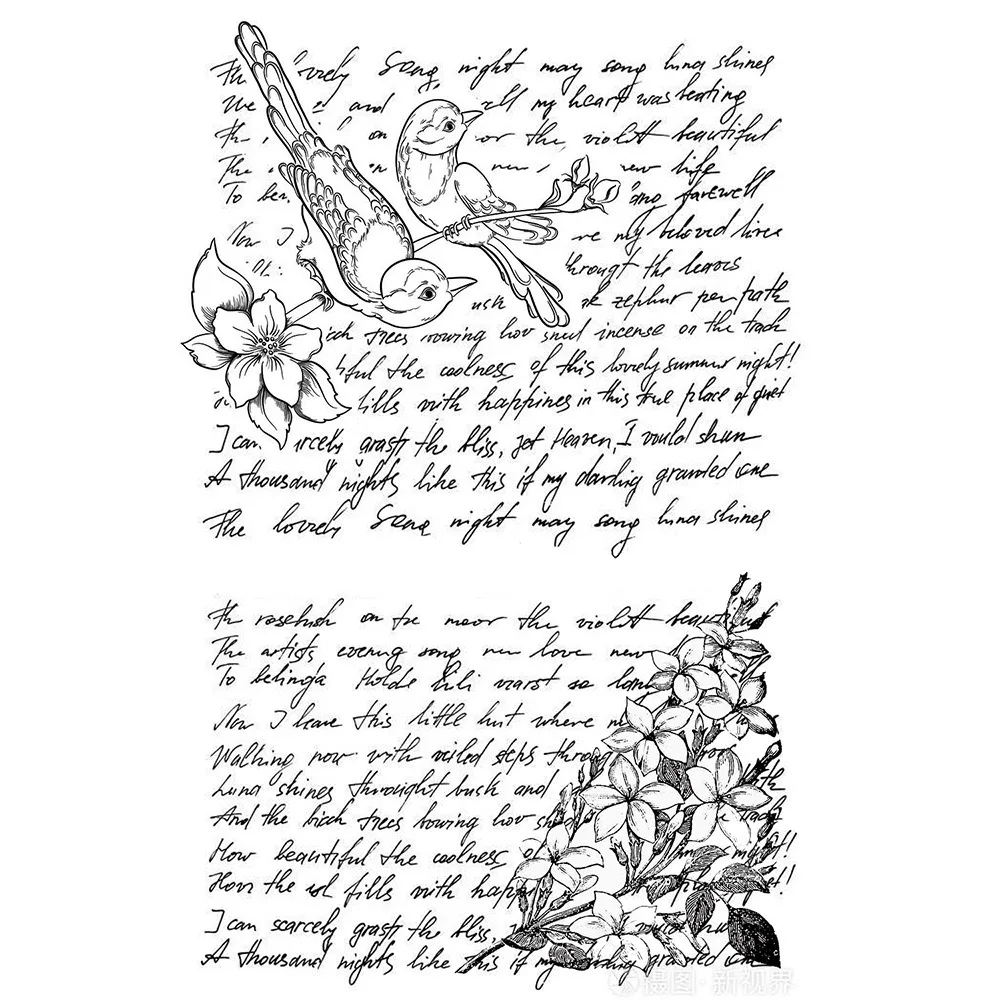 The lovely Song night may song luna shines
We and all my heart was beating
Th on or the violett beautiful
The new life
To be ong farewell
Now I re my beloved
througt the leaves
usk zephyr per path
ich trees rowing how sned incense on the track
tful the coolness of this lovely summer night!
fills with happines in this true place of quiet
I can rcely grasp the bliss, jet Heaven, I would shun
A thousand nights like this if my darling granted one
The lovely Song night may song luna shines
Th rosebush on the moor the violett beautiful
The artists evening song new love new
To belinga Holde Lili warst so lang
Now I leave this little hut where m
Walking now with veiled steps throug
Luna shines throught bush and
And the birch trees bowing how sh track
How beautiful the coolness of night!
How the fills with happi
I can scarcely grasp the bliss,
A thousand nights like this if my darling granted one
摄图·新视界